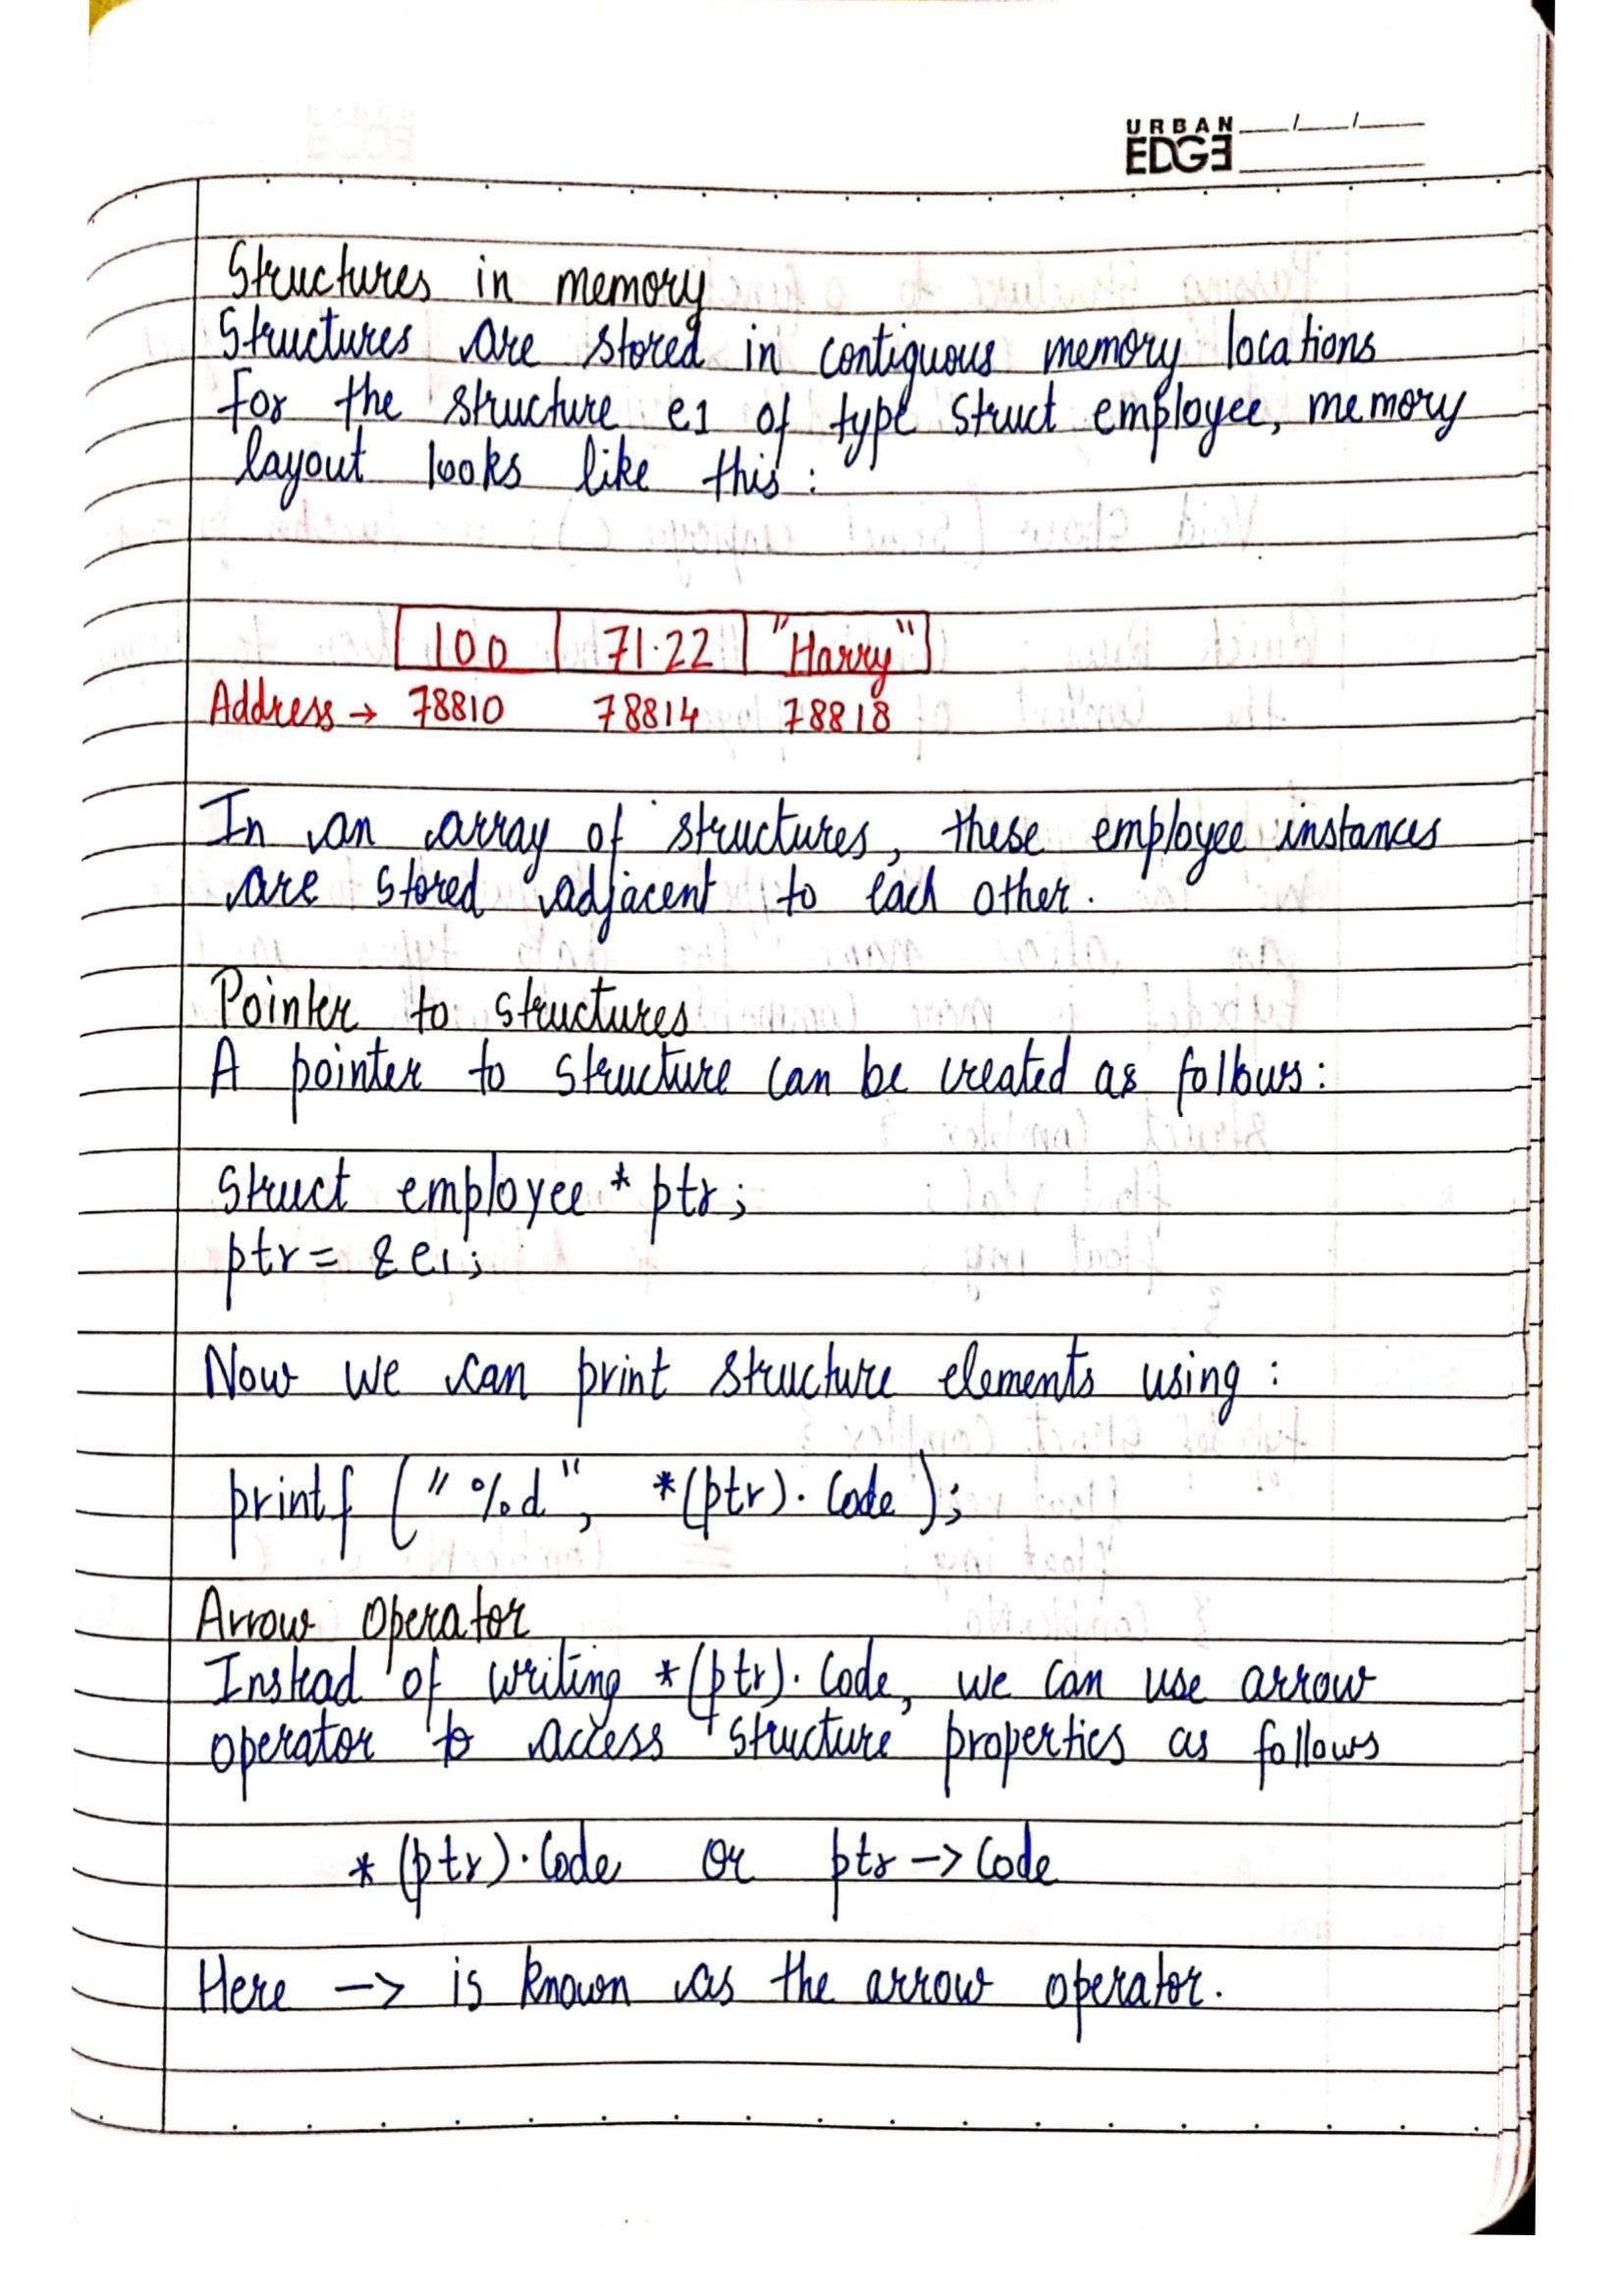 URBAN
EDGE
Structures in memory
Structures are stored in contiguous memory locations
For the structure e1 of type struct employee, memory
layout looks like this:
100 71.22 "Harry"
Address → 78810 78814 78818
In an array of structures, these employee instances
are stored adjacent to each other.
Pointer to structures
A pointer to structure can be created as follows:
Struct employee * ptr;
ptr = &e1;
Now we can print structure elements using:
printf ("%d", *(ptr).Code);
Arrow Operator
Instead of writing *(ptr).Code, we can use arrow
operator to access structure properties as follows
*(ptr).Code or ptr -> Code
Here -> is known as the arrow operator.